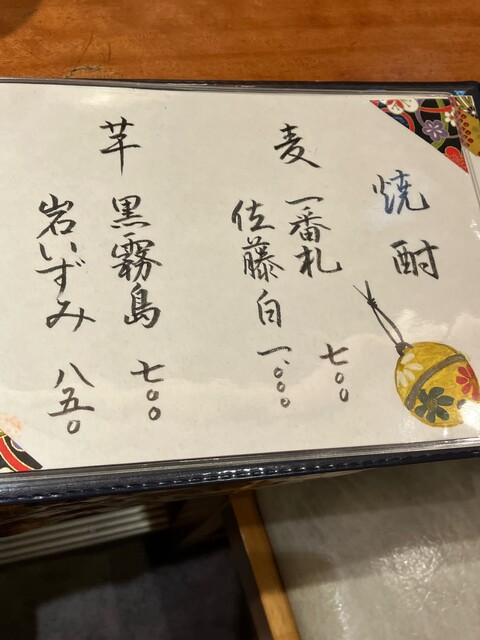 焼酎
麦
一番札 七〇〇
佐藤白 一、〇〇〇
芋
黒霧島 七〇〇
岩いずみ 八五〇